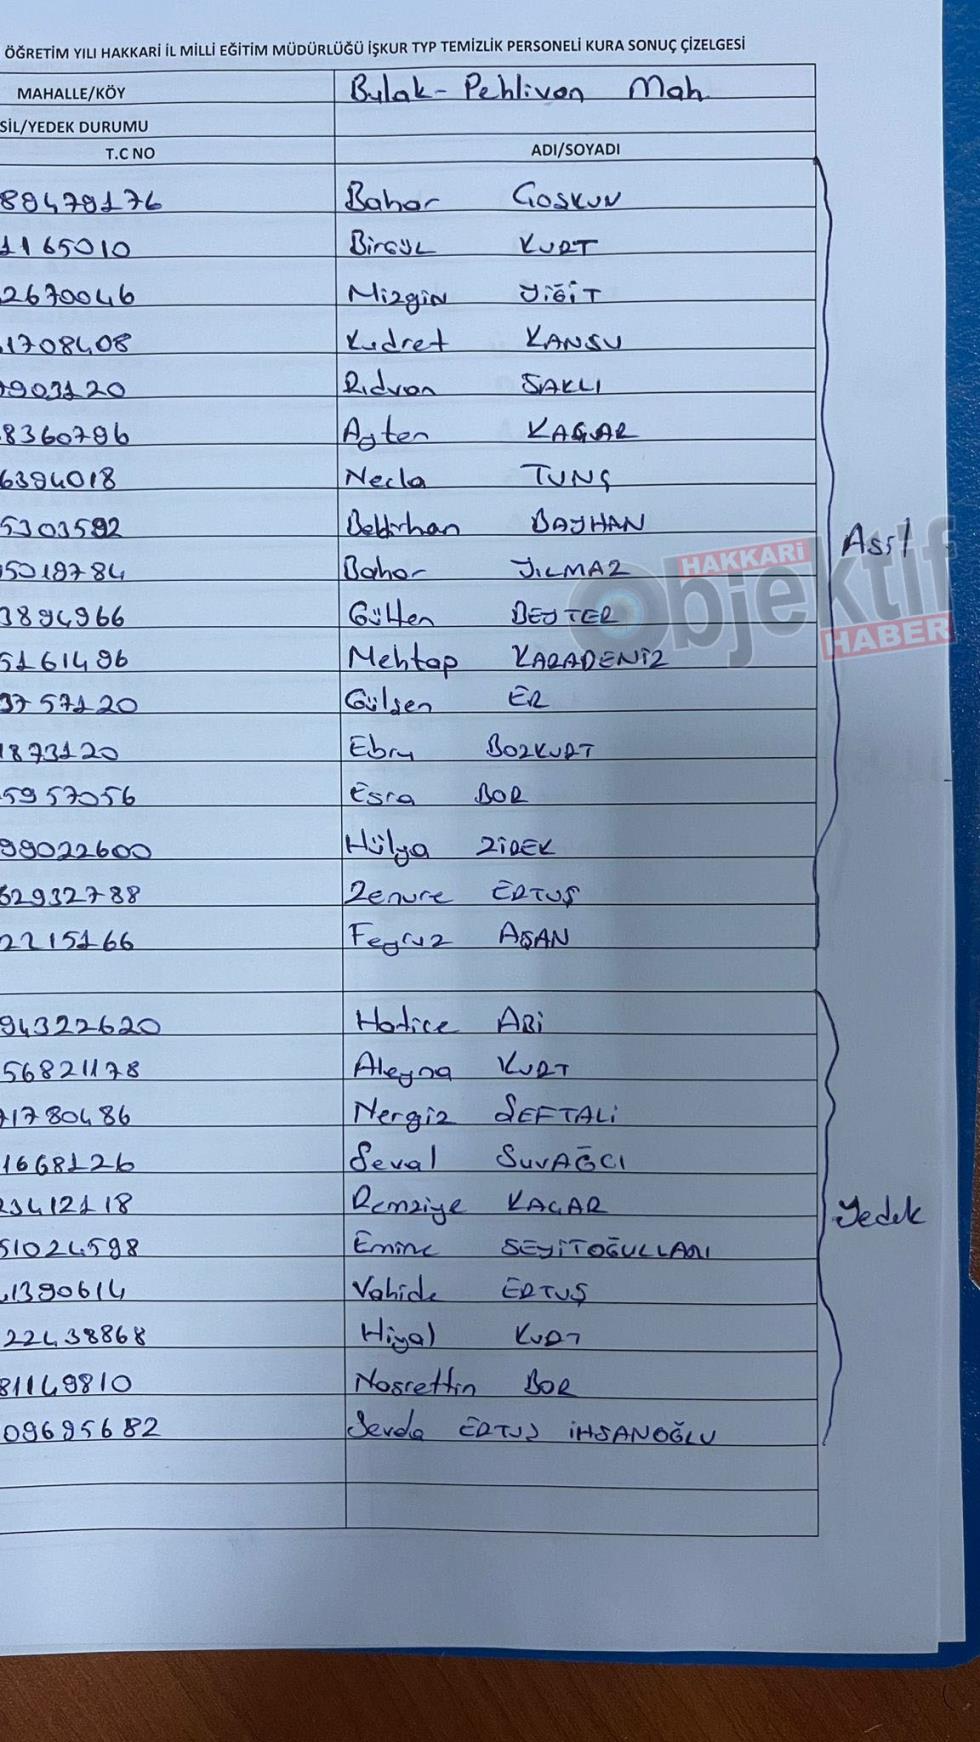 ÖĞRETİM YILI HAKKARİ İL MİLLİ EĞİTİM MÜDÜRLÜĞÜ İŞKUR TYP TEMİZLİK PERSONELİ KURA SONUÇ ÇİZELGESİ
MAHALLE/KÖY Bulak-Pehlivan Mah
SİL/YEDEK DURUMU
T.C NO ADI/SOYADI
89479176 Bahar COŞKUN
1165010 Birgül KURT
2670046 Mizgin YİĞİT
1708408 Kudret KANSU
903120 Rıdvan SAKLI
8360796 Ayten KAÇAR
6394018 Necla TUNÇ
5303592 Bedirhan BAYHAN
5019784 Bahar YILMAZ
3894966 Gülten BEYTER
5161496 Mehtap KARADENİZ
3757120 Gülsen ER
1873120 Ebru BOZKURT
5957056 Esra BOR
99022600 Hülya ZİREK
62932788 Zenure ERTUŞ
2215166 Feyruz AŞAN
Asıl
HAKKARİ
Objektif
HABER
94322620 Hatice ARİ
56821178 Aleyna KURT
1780486 Nergiz ŞEFTALİ
1668126 Seval SUVAĞCI
23412118 Remziye KAÇAR
51024598 Emine SEYİTOĞULLARI
1390614 Vahide ERTUŞ
22438868 Hiyal KURT
81149810 Nasrettin BOR
09695682 Sevda ERTUŞ İHSANOĞLU
Yedek